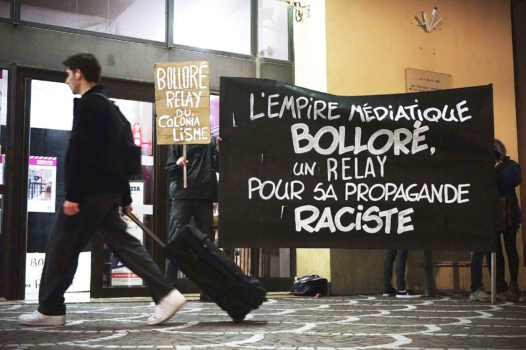 BOLLORÉ
RELAY
DU
COLONIA
LISME
L'EMPIRE MÉDIATIQUE
BOLLORÉ,
UN RELAY
POUR SA PROPAGANDE
RACISTE